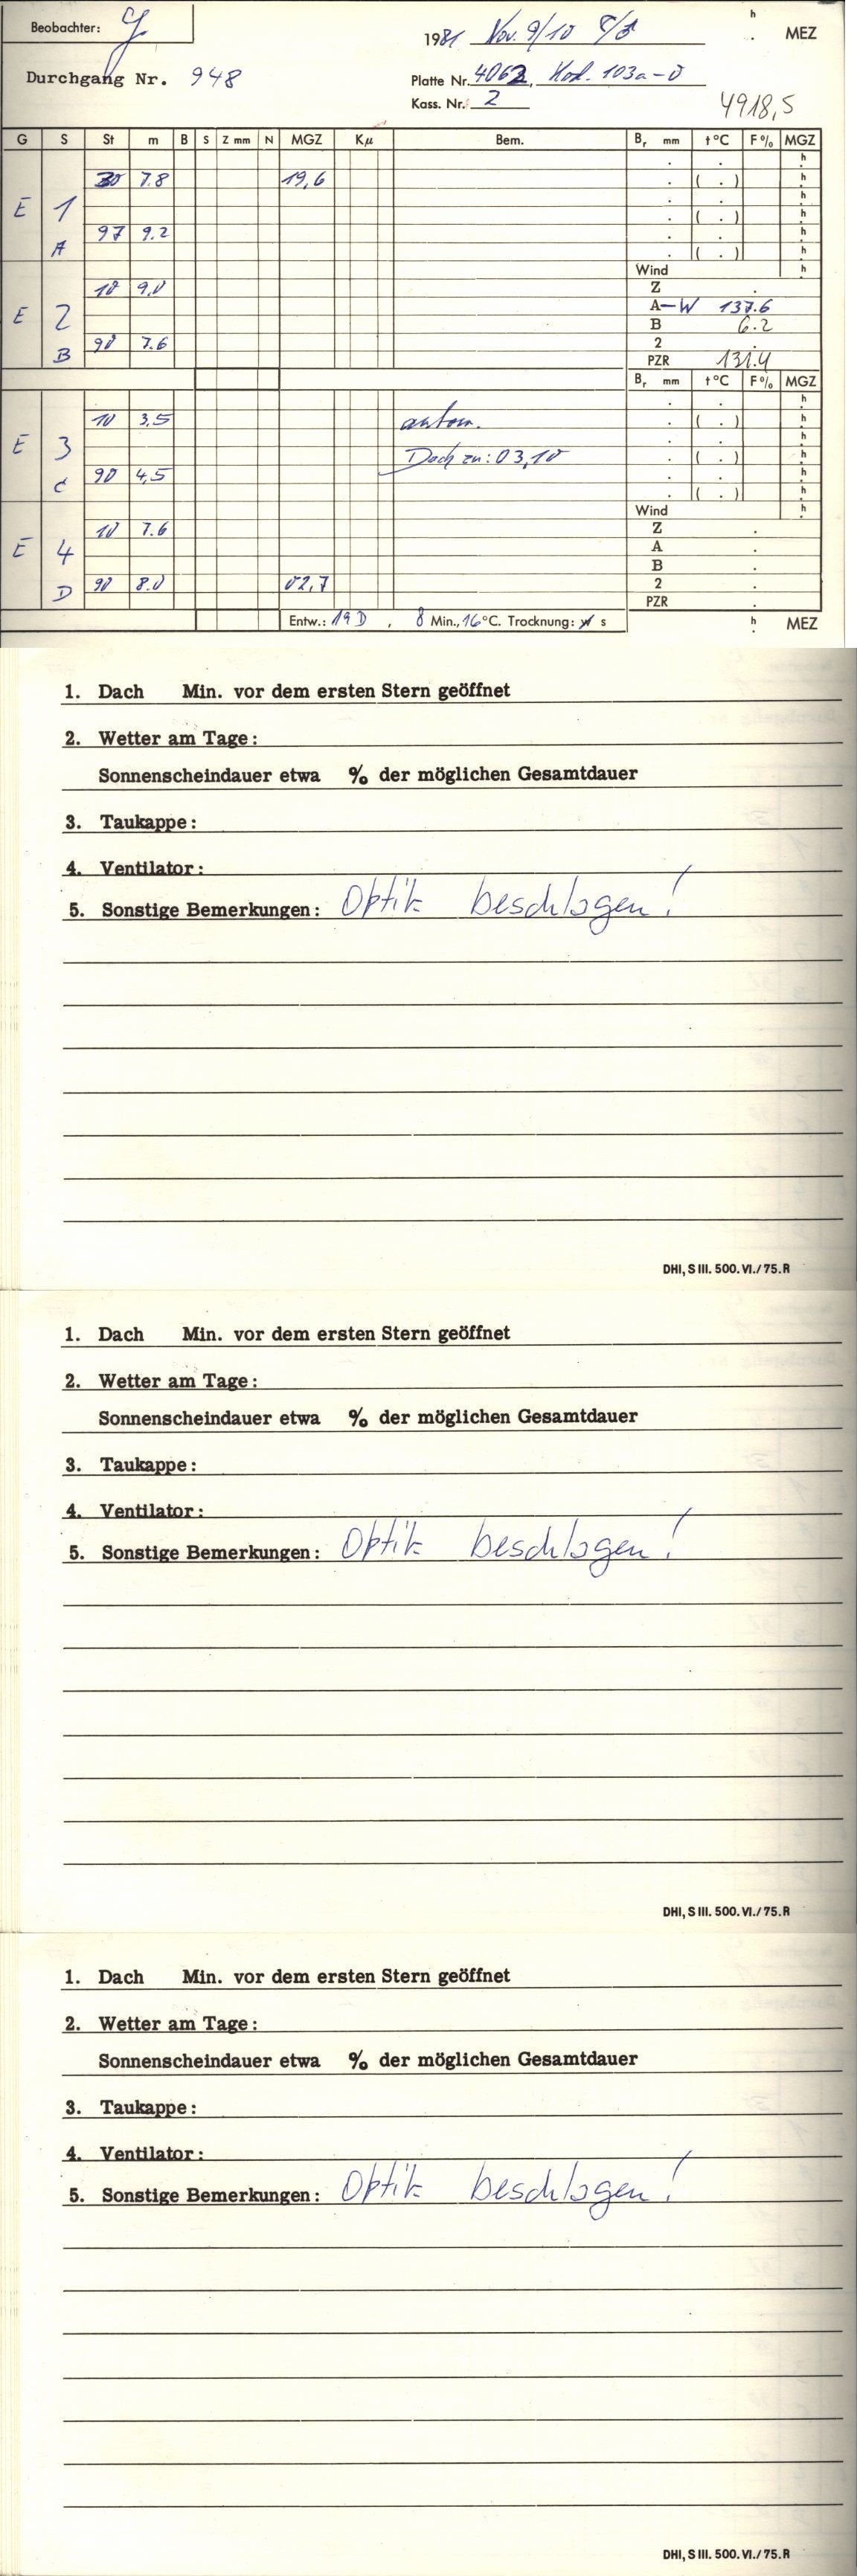 Beobachter:
1981 Nov. 9/10
h
. MEZ
Durchgang Nr. 948
Platte Nr. 4062, Kod. 103a-0
Kass. Nr. 2
4918,5
G S St m B S Z mm N MGZ Kμ Bem. Br mm t°C F% MGZ
. . h
30 7.8 19,6 . ( . ) h
E 1 . . h
. ( . ) h
97 9.2 . . h
A . ( . ) h
Wind h
10 9,0 Z .
E 2 A-W 137.6
B 6.2
90 7.6 2 .
B PZR 131.4
Br mm t°C F% MGZ
. . h
10 3,5 autom. . ( . ) h
E 3 . . h
Dach zu: 03,10 . ( . ) h
90 4,5 . . h
C . ( . ) h
Wind h
10 7.6 Z .
E 4 A .
B .
90 8.0 02,7 2 .
D PZR .
Entw.: 19D , 8 Min., 16°C. Trocknung: w s
h
. MEZ
1. Dach Min. vor dem ersten Stern geöffnet
2. Wetter am Tage:
Sonnenscheindauer etwa % der möglichen Gesamtdauer
3. Taukappe:
4. Ventilator:
5. Sonstige Bemerkungen: Optik beschlagen!
DHI, S III. 500. VI./75. R
1. Dach Min. vor dem ersten Stern geöffnet
2. Wetter am Tage:
Sonnenscheindauer etwa % der möglichen Gesamtdauer
3. Taukappe:
4. Ventilator:
5. Sonstige Bemerkungen: Optik beschlagen!
DHI, S III. 500. VI./75. R
1. Dach Min. vor dem ersten Stern geöffnet
2. Wetter am Tage:
Sonnenscheindauer etwa % der möglichen Gesamtdauer
3. Taukappe:
4. Ventilator:
5. Sonstige Bemerkungen: Optik beschlagen!
DHI, S III. 500. VI./75. R